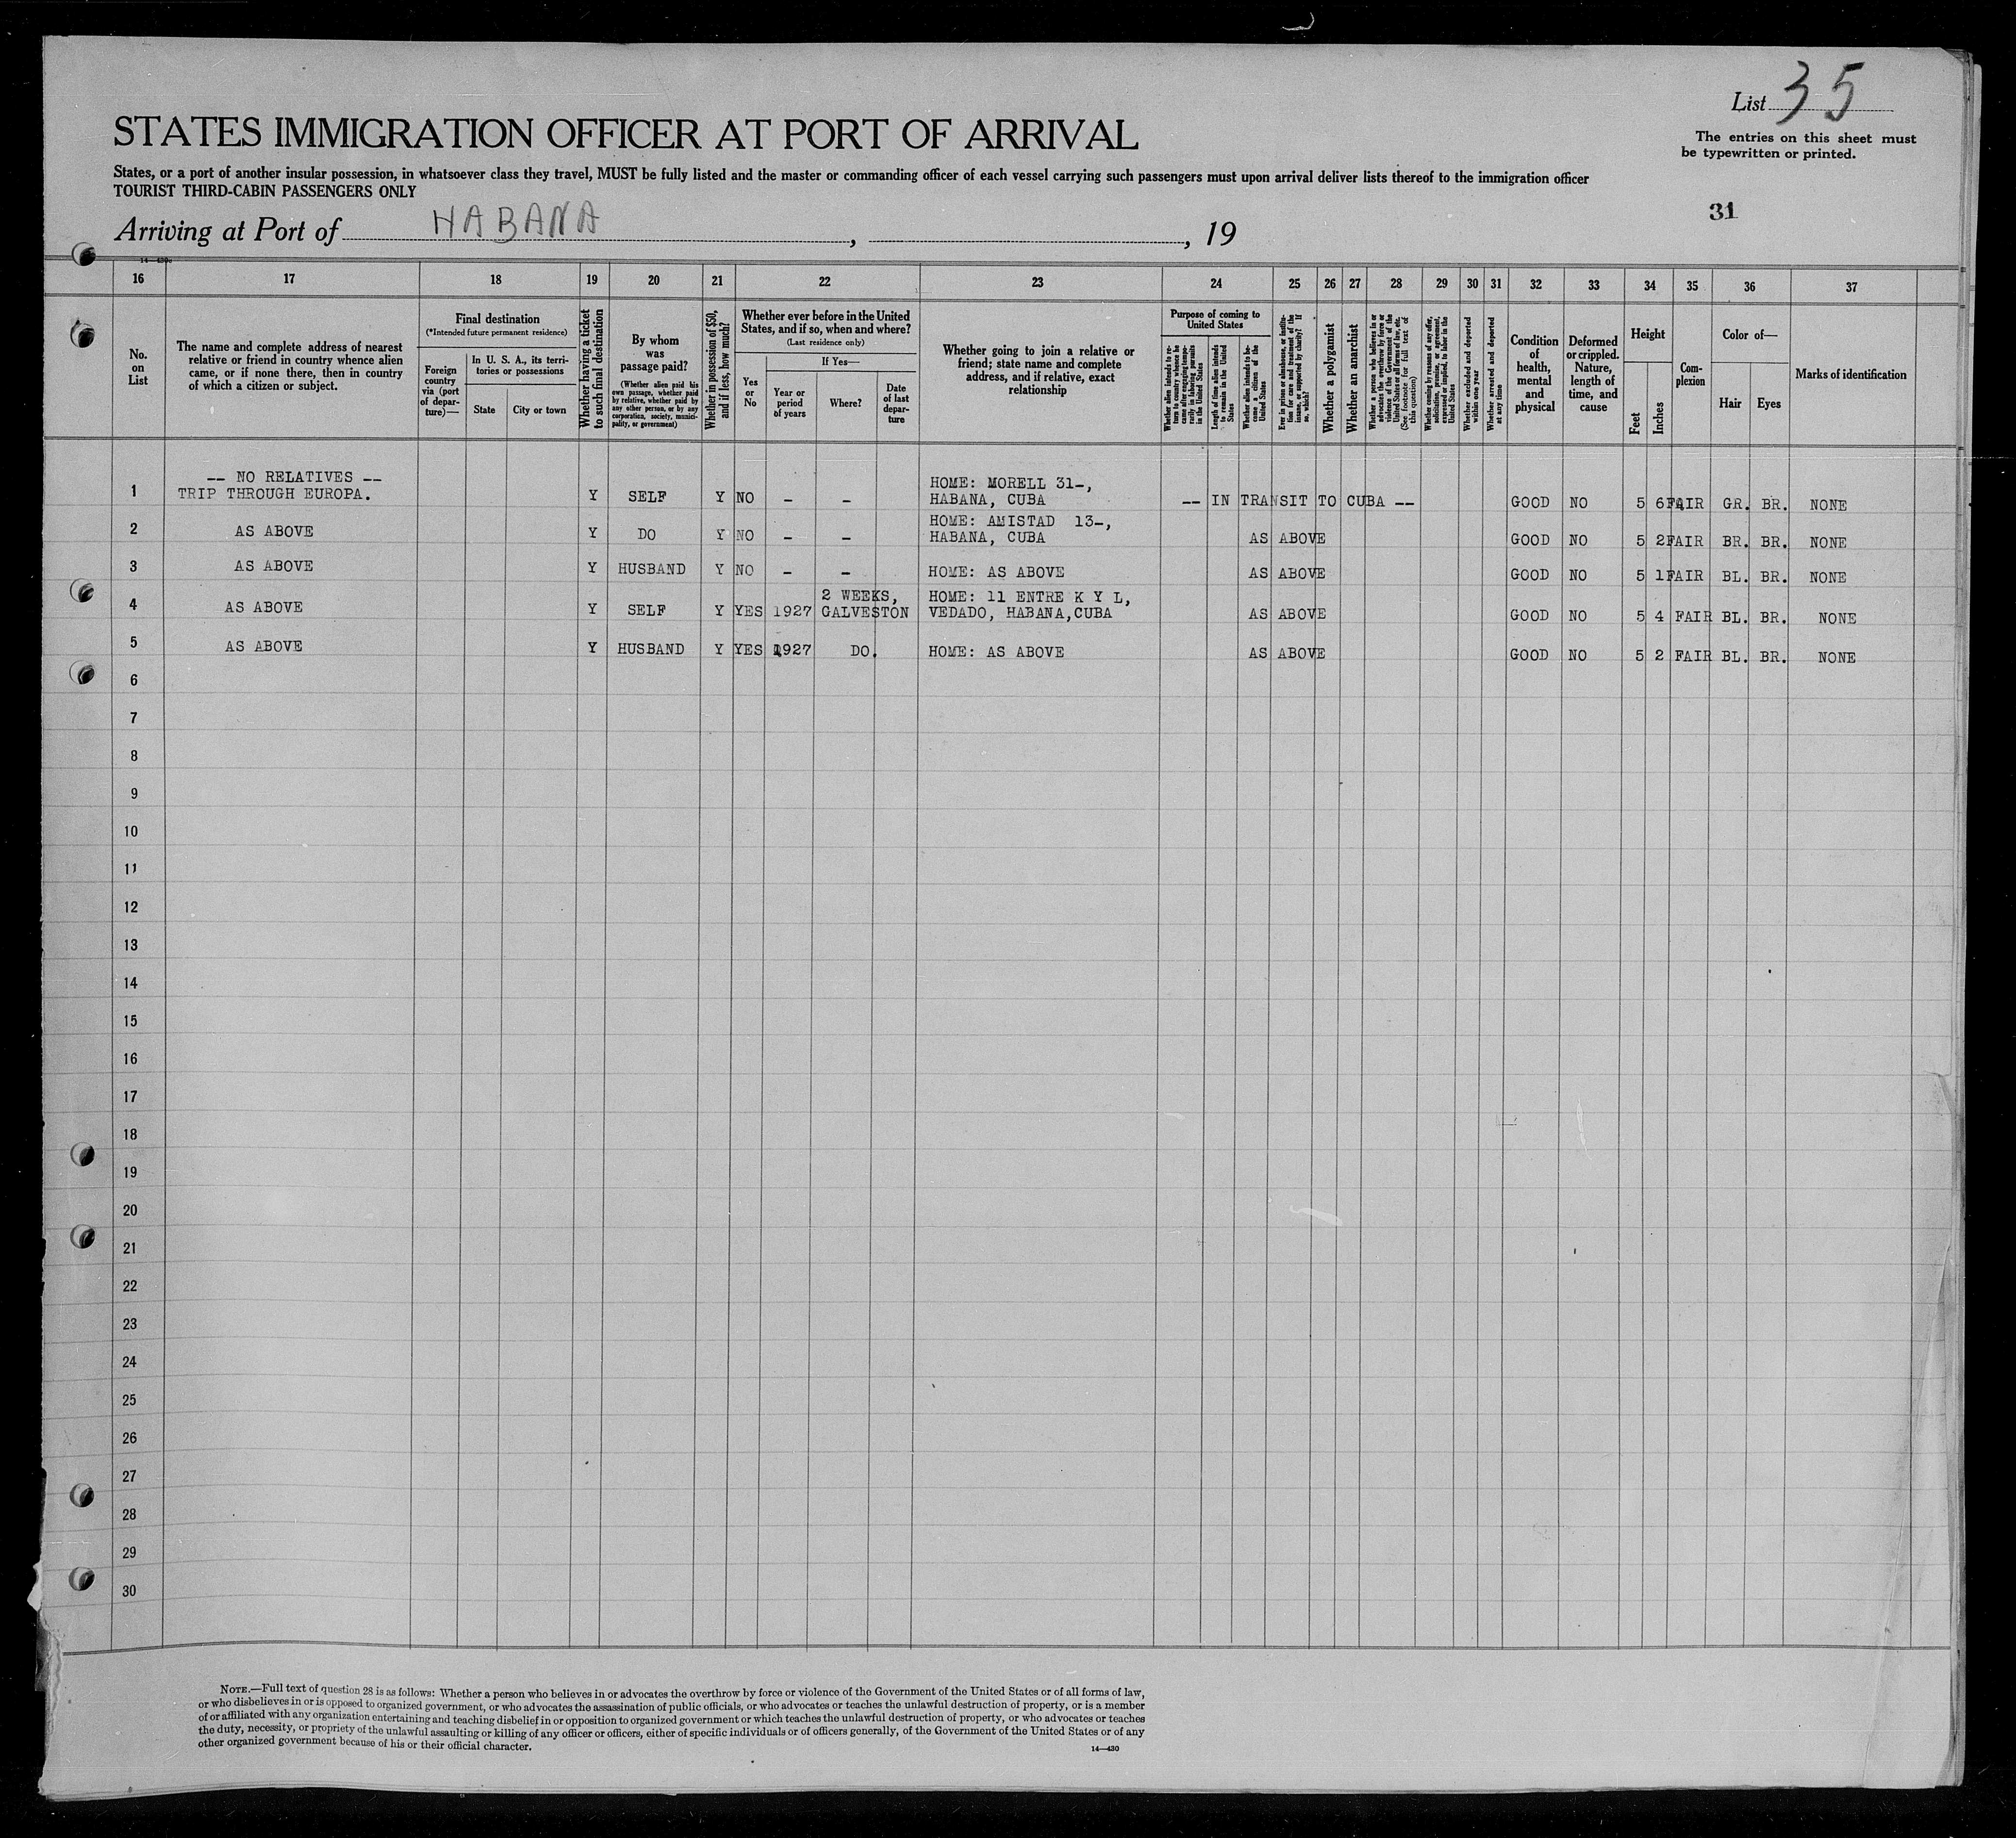 List 35
STATES IMMIGRATION OFFICER AT PORT OF ARRIVAL
The entries on this sheet must
be typewritten or printed.
States, or a port of another insular possession, in whatsoever class they travel, MUST be fully listed and the master or commanding officer of each vessel carrying such passengers must upon arrival deliver lists thereof to the immigration officer
TOURIST THIRD-CABIN PASSENGERS ONLY
31
Arriving at Port of HABANA , , 19
16 17 18 19 20 21 22 23 24 25 26 27 28 29 30 31 32 33 34 35 36 37
No.
on
List
The name and complete address of nearest
relative or friend in country whence alien
came, or if none there, then in country
of which a citizen or subject.
Final destination
(*Intended future permanent residence)
Foreign
country
via (port
of depar-
ture)—
In U. S. A., its terri-
tories or possessions
State
City or town
Whether having a ticket
to such final destination
By whom
was
passage paid?
(Whether alien paid his
own passage, whether paid
by relative, whether paid by
any other person, or by any
corporation, society, munici-
pality, or government)
Whether in possession of $50,
and if less, how much?
Whether ever before in the United
States, and if so, when and where?
(Last residence only)
Yes
or
No
If Yes—
Year or
period
of years
Where?
Date
of last
depar-
ture
Whether going to join a relative or
friend; state name and complete
address, and if relative, exact
relationship
Purpose of coming to
United States
Whether alien intends to re-
turn to country whence he
came after engaging tempo-
rarily in laboring pursuits
in the United States
Length of time alien intends
to remain in the United
States
Whether alien intends to be-
come a citizen of the
United States
Ever in prison or almshouse, or institu-
tion for care and treatment of the
insane, or supported by charity? If
so, which?
Whether a polygamist
Whether an anarchist
Whether a person who believes in or
advocates the overthrow by force or
violence of the Government of the
United States or all forms of law, etc.
(See footnote for full text of
this question)
Whether coming by reason of any offer,
solicitation, promise, or agreement,
expressed or implied, to labor in the
United States
Whether excluded and deported
within one year
Whether arrested and deported
at any time
Condition
of
health,
mental
and
physical
Deformed
or crippled.
Nature,
length of
time, and
cause
Height
Feet
Inches
Com-
plexion
Color of—
Hair
Eyes
Marks of identification
-- NO RELATIVES -- HOME: MORELL 31-,
1 TRIP THROUGH EUROPA. Y SELF Y NO - - HABANA, CUBA -- IN TRANSIT TO CUBA -- GOOD NO 5 6 FAIR GR. BR. NONE
HOME: AMISTAD 13-,
2 AS ABOVE Y DO Y NO - - HABANA, CUBA AS ABOVE GOOD NO 5 2 FAIR BR. BR. NONE
3 AS ABOVE Y HUSBAND Y NO - - HOME: AS ABOVE AS ABOVE GOOD NO 5 1 FAIR BL. BR. NONE
2 WEEKS, HOME: 11 ENTRE K Y L,
4 AS ABOVE Y SELF Y YES 1927 GALVESTON VEDADO, HABANA, CUBA AS ABOVE GOOD NO 5 4 FAIR BL. BR. NONE
5 AS ABOVE Y HUSBAND Y YES 1927 DO. HOME: AS ABOVE AS ABOVE GOOD NO 5 2 FAIR BL. BR. NONE
6
7
8
9
10
11
12
13
14
15
16
17
18
19
20
21
22
23
24
25
26
27
28
29
30
NOTE.—Full text of question 28 is as follows: Whether a person who believes in or advocates the overthrow by force or violence of the Government of the United States or of all forms of law,
or who disbelieves in or is opposed to organized government, or who advocates the assassination of public officials, or who advocates or teaches the unlawful destruction of property, or is a member
of or affiliated with any organization entertaining and teaching disbelief in or opposition to organized government or which teaches the unlawful destruction of property, or who advocates or teaches
the duty, necessity, or propriety of the unlawful assaulting or killing of any officer or officers, either of specific individuals or of officers generally, of the Government of the United States or of any
other organized government because of his or their official character.
14—430